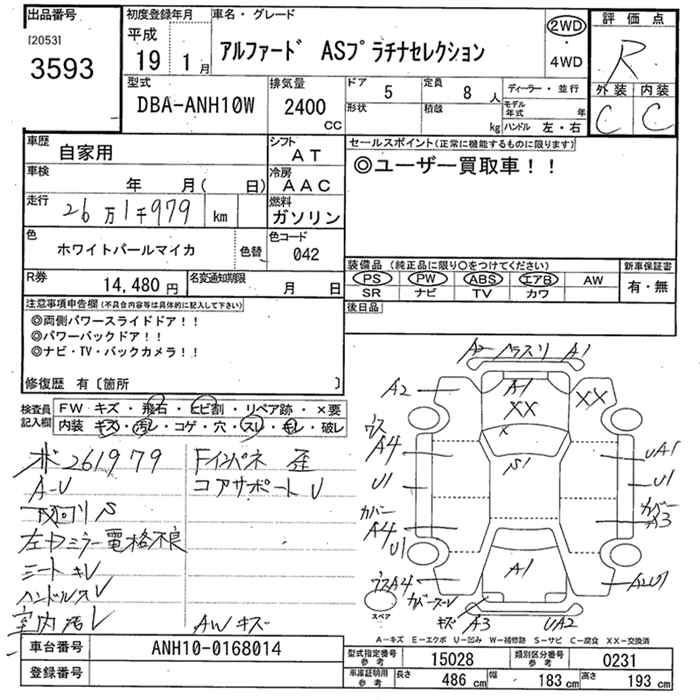 出品番号
[2053]
3593
初度登録年月
平成
19 1月
車名・グレード
アルファード ASプラチナセレクション
2WD
・
4WD
評価点
R
外装 内装
C C
型式
DBA-ANH10W
排気量
2400
CC
ドア
5
定員
8 人
形状
積載
kg
ディーラー・並行
モデル
年式 年
ハンドル 左・右
車歴
自家用
シフト
AT
車検
年 月( 日)
冷房
AAC
走行
26万1千979 km
燃料
ガソリン
色
ホワイトパールマイカ
色替
色コード
042
R券
14,480円
名変通知期限
月 日
セールスポイント(正常に機能するものに限ります)
◎ユーザー買取車!!
装備品(純正品に限り○をつけてください)
PS PW ABS エアB AW
SR ナビ TV カワ
新車保証書
有・無
後日品
注意事項申告欄(不具合内容等は具体的に記入して下さい)
◎両側パワースライドドア!!
◎パワーバックドア!!
◎ナビ・TV・バックカメラ!!
修復歴 有〔箇所 〕
検査員
記入欄
FW キズ・飛石・ヒビ割・リペア跡・×要
内装 キズ・汚レ・コゲ・穴・スレ・キレ・破レ
ボ261979
Fインパネ 歪
コアサポートU
左ドミラー電格不良
AWキズ
A2 ヘラスリ A1
A2
A1
XX
XX
S1
A4
U1
カバー
A4
U1
UA1
U1
カバー
A3
A1
A3
UA2
キズ
スペア
A-キズ E-エクボ U-凹み W-補修跡 S-サビ C-腐食 XX-交換済
車台番号
ANH10-0168014
登録番号
型式指定番号
参考
15028
類別区分番号
参考
0231
車庫証明用
参考
長さ
486 cm
幅
183 cm
高さ
193 cm